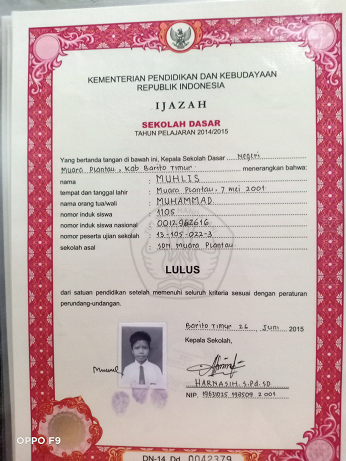 KEMENTERIAN PENDIDIKAN DAN KEBUDAYAAN
REPUBLIK INDONESIA
IJAZAH
SEKOLAH DASAR
TAHUN PELAJARAN 2014/2015
Yang bertanda tangan di bawah ini, Kepala Sekolah Dasar Negeri
Muara Plantau, Kab Barito Timur menerangkan bahwa:
nama : MUHLIS
tempat dan tanggal lahir : Muara Plantau, 7 mei 2001
nama orang tua/wali : MUHAMMAD
nomor induk siswa : 1105
nomor induk siswa nasional : 0012962616
nomor peserta ujian sekolah : 13-105-022-3
sekolah asal : SDN Muara Plantau
LULUS
dari satuan pendidikan setelah memenuhi seluruh kriteria sesuai dengan peraturan
perundang-undangan.
Barito Timur 26 Juni 2015
Kepala Sekolah,
HARNASIH, S.Pd.SD
NIP.
DN-14 Dd 0042379
OPPO F9